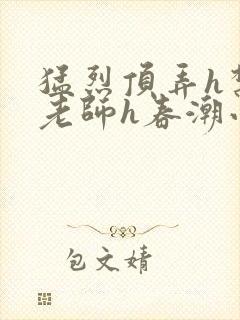 猛烈頂弄h
老師h春潮
包文婧